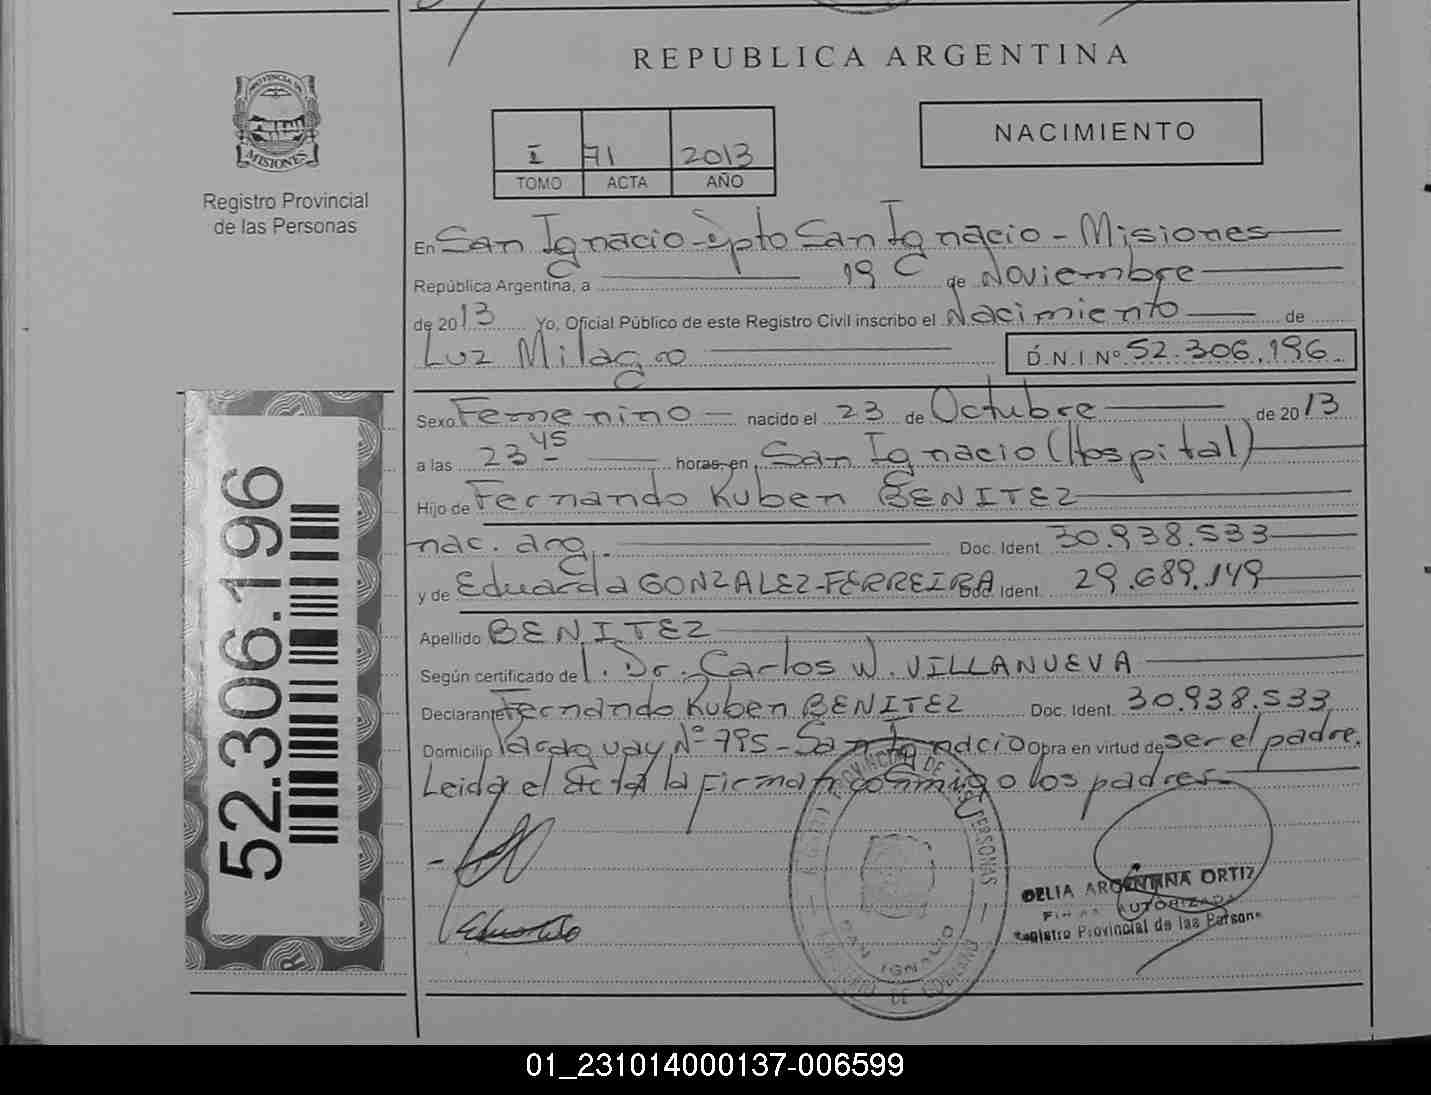 REPUBLICA ARGENTINA
PROVINCIA DE
MISIONES
Registro Provincial
de las Personas
I 71 2013
TOMO ACTA AÑO
NACIMIENTO
En San Ignacio - Dpto San Ignacio - Misiones
República Argentina, a 19 de Noviembre
de 2013 Yo, Oficial Público de este Registro Civil inscribo el Nacimiento de
Luz Milagro D.N.I.Nº 52.306.196
Sexo Femenino nacido el 23 de Octubre de 2013
a las 23 45 horas, en San Ignacio (Hospital)
Hijo de Fernando Ruben BENITEZ
nac. arg. Doc. Ident. 30.938.533
y de Eduarda GONZALEZ-FERREIRA Doc. Ident. 29.689.149
Apellido BENITEZ
Según certificado de l. Dr. Carlos W. VILLANUEVA
Declarante Fernando Ruben BENITEZ Doc. Ident. 30.938.533
Domicilio Paraguay Nº 795 - San Ignacio Obra en virtud de ser el padre.
Leida el acta la firman conmigo los padres
52.306.196
PROVINCIAL DE LAS PERSONAS
SAN IGNACIO
DE GOBIERNO
DELIA ARGENTINA ORTIZ
FIRMA AUTORIZADA
Registro Provincial de las Person
01_231014000137-006599